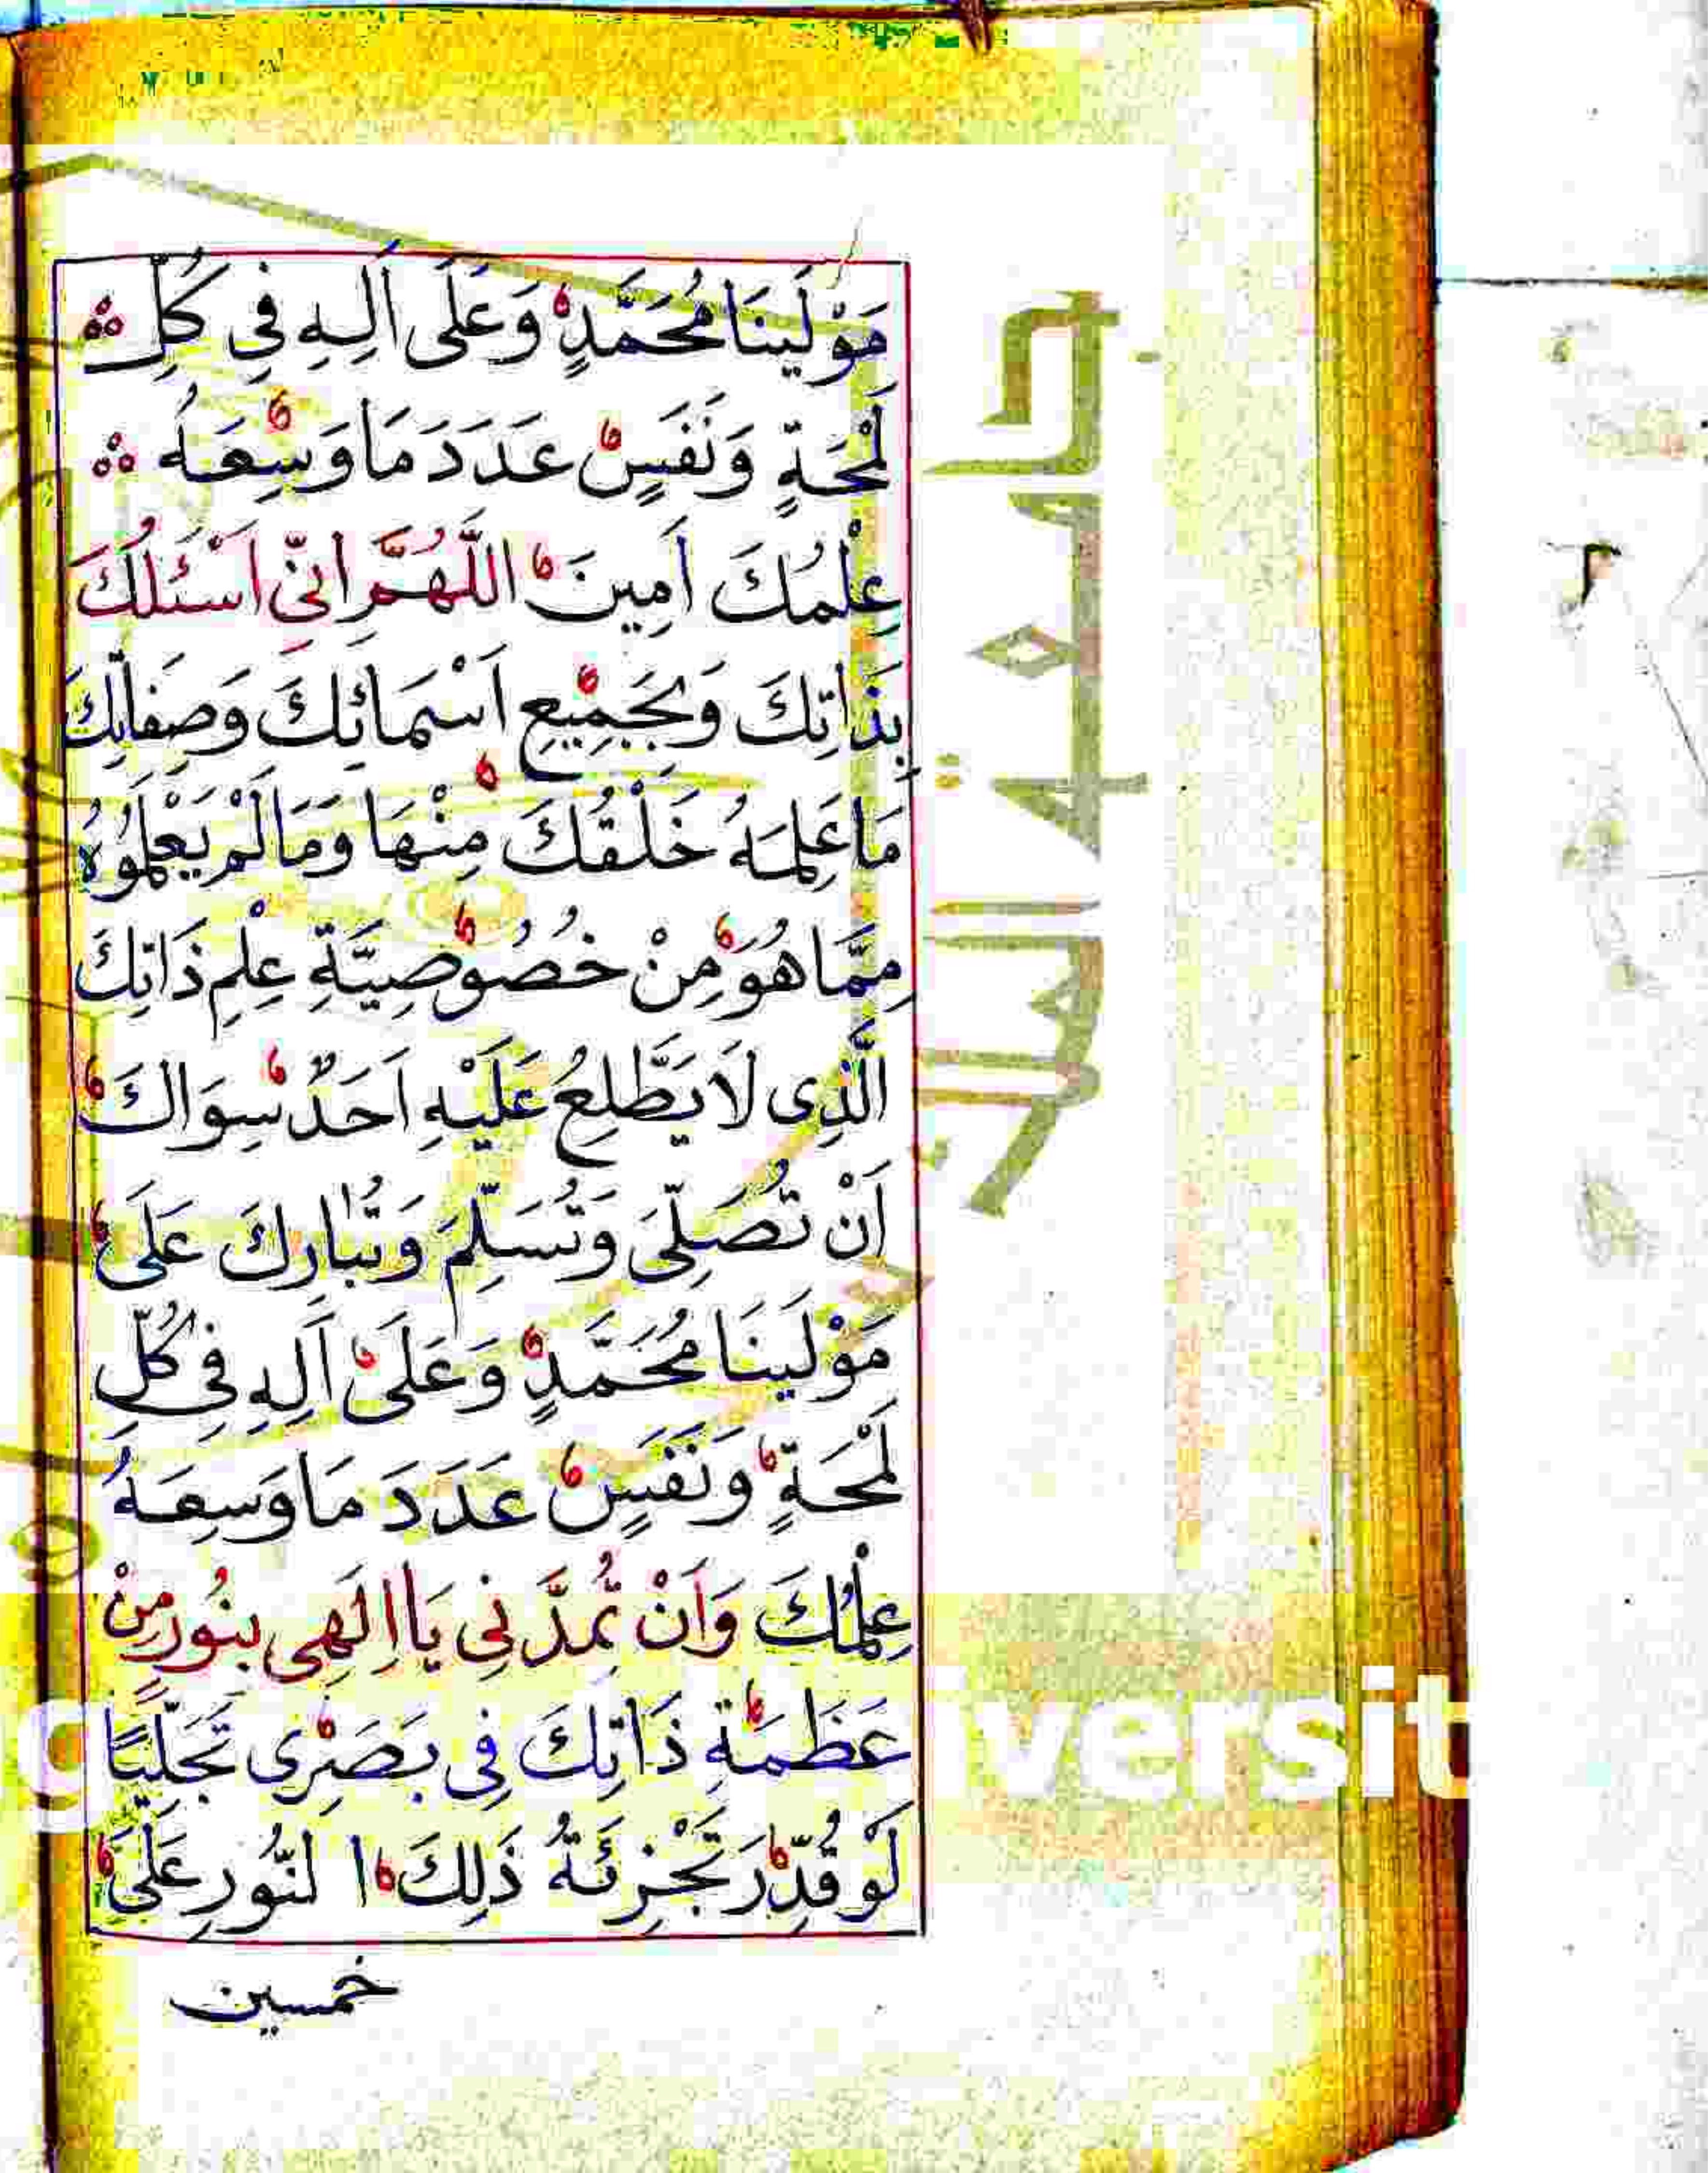 مَوْلَينَا مُحَمَّدٍ وَعَلَى اَلِهِ فِي كُلِّ
لَمْحَةٍ وَنَفَسٍ عَدَدَ مَا وَسِعَهُ
عِلْمُكَ اَمِينَ اللَّهُمَّ اِنِّي اَسْئَلُكَ
بِذَاتِكَ وَبِجَمِيعِ اَسْمَائِكَ وَصِفَاتِكَ
مَا عَلِمَهُ خَلْقُكَ مِنْهَا وَمَا لَمْ يَعْلَمُوهُ
مِمَّا هُوَ مِنْ خُصُوصِيَّةِ عِلْمِ ذَاتِكَ
الَّذِى لَا يَطَّلِعُ عَلَيْهِ اَحَدٌ سِوَاكَ
اَنْ تُصَلِّىَ وَتُسَلِّمَ وَتُبَارِكَ عَلَى
مَوْلَينَا مُحَمَّدٍ وَعَلَى اَلِهِ فِي كُلِّ
لَمْحَةٍ وَنَفَسٍ عَدَدَ مَا وَسِعَهُ
عِلْمُكَ وَاَنْ تُمِدَّنِي يَا اِلَهِى بِنُورٍ مِنْ
عَظَمَةِ ذَاتِكَ فِى بَصَرِى تَجَلِّيًا
لَوْ قُدِّرَ تَجْزِئَةُ ذَلِكَ النُّورِ عَلَى
خمسين
جامعة الملك
iversit